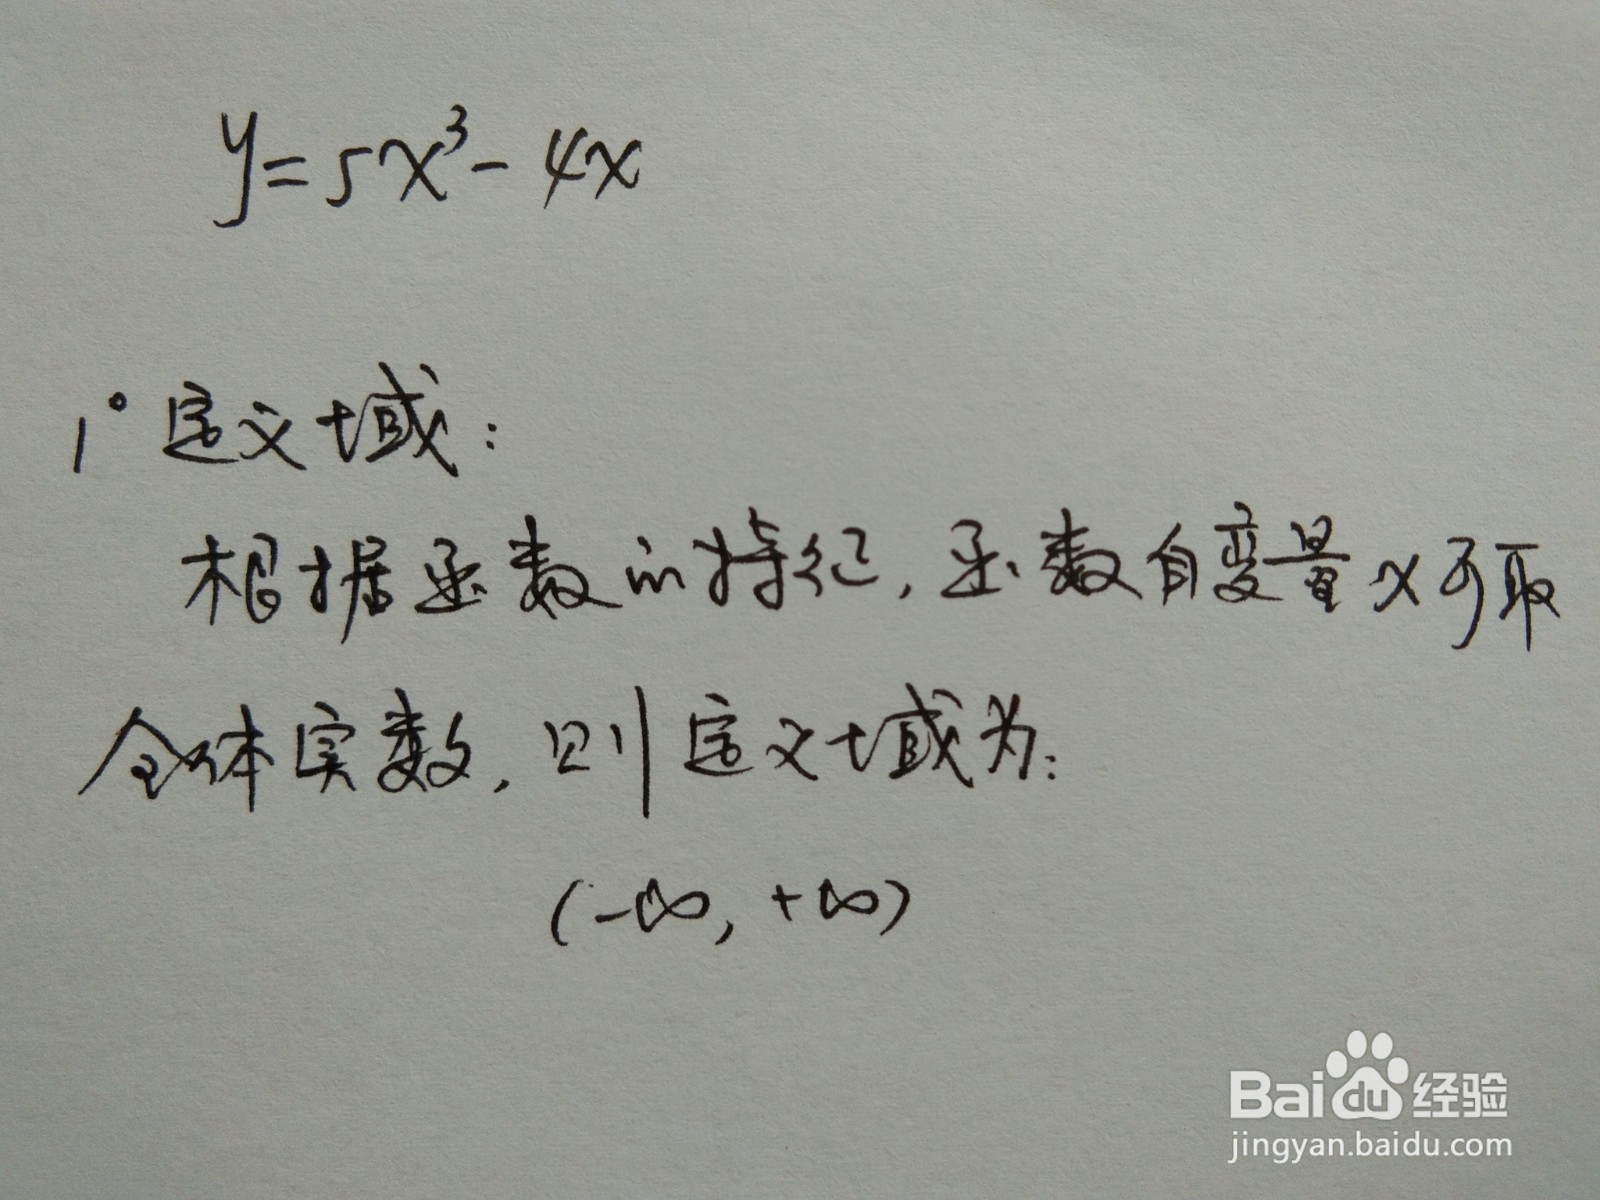 y=5x³-4x
1° 定义域:
根据函数的特征,函数自变量x可取
全体实数,则定义域为:
(-∞,+∞)
Bai du 经验
jingyan.baidu.com